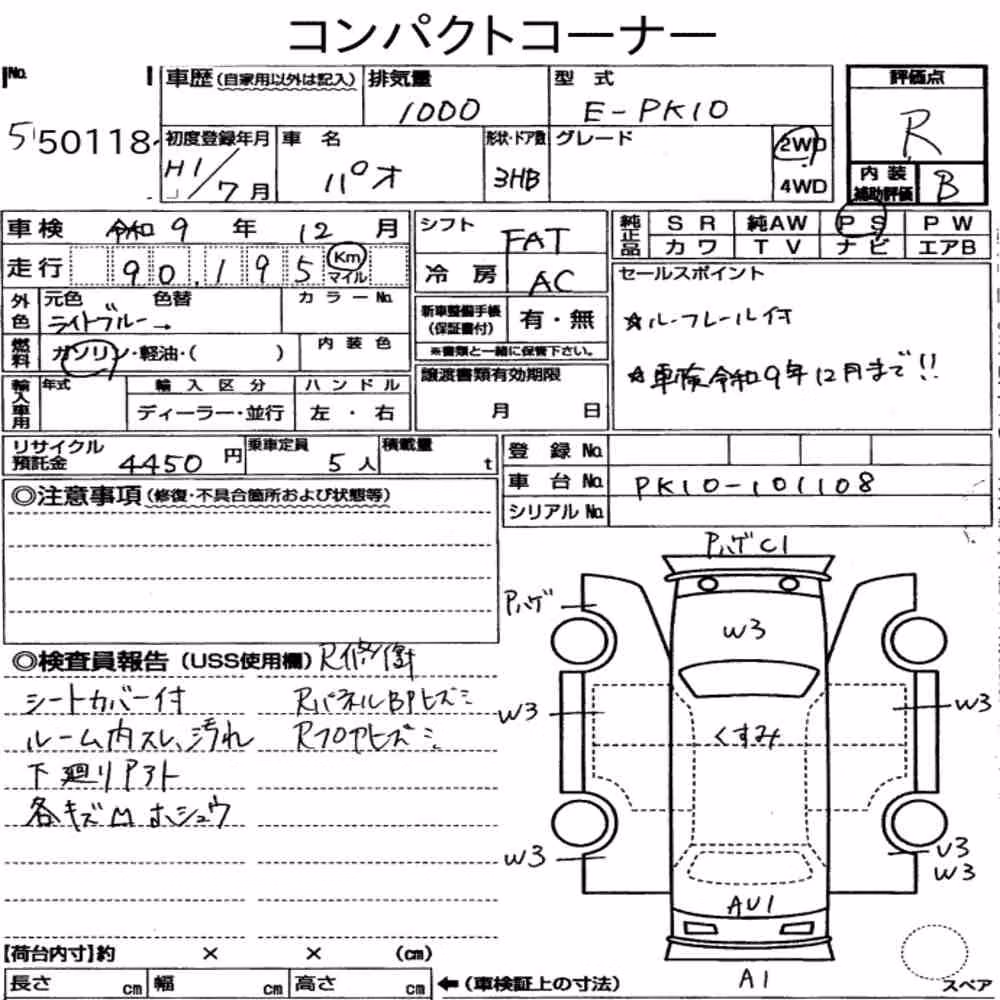 コンパクトコーナー
No. 5 50118
車歴(自家用以外は記入) 排気量 1000 型式 E-PK10 評価点 R
初度登録年月 H1/7月 車名 パオ 形状・ドア数 3HB グレード 2WD 4WD
内装補助評価 B
車検 令和9年12月 シフト FAT 純正品 SR 純AW PS PW
カワ TV ナビ エアB
走行 90,195 Km マイル 冷房 AC
セールスポイント
外色 元色 ライトブルー 色替 → カラーNo.
新車整備手帳(保証書付) 有・無
※書類と一緒に保管下さい。
☆ルーフレール付
燃料 ガソリン・軽油・( ) 内装色
☆車検令和9年12月まで!!
輸入車用 年式 輸入区分 ハンドル
ディーラー・並行 左・右
譲渡書類有効期限
月 日
リサイクル預託金 4450円 乗車定員 5人 積載量 t
登録No.
車台No. PK10-101108
シリアルNo.
◎注意事項(修復・不具合箇所および状態等)
◎検査員報告(USS使用欄) R修衝
シートカバー付 RパネルBPヒズミ
ルーム内スレ、汚れ Rフロアヒズミ
下廻りPアト
各キズMホシュウ
PハゲC1
Pハゲ
W3
W3 W3
くすみ
W3 U3
W3
AU1
A1
スペア
【荷台内寸】約 × × (cm)
長さ cm 幅 cm 高さ cm ←(車検証上の寸法)